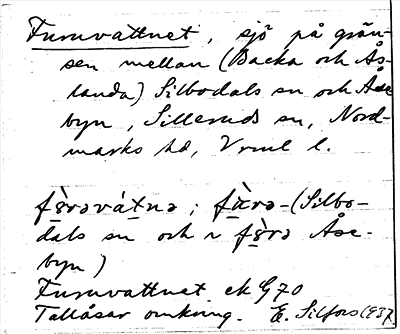 Furuvattnet, sjö på grän-
sen mellan (Backa och Ås-
landa) Silbodals sn och Åse
byn, Silleruds sn, Nord-
marks hd, Vrml l.
fùrəvátnə; fùrə-(Silbo-
dals sn och i fùrə Åse-
byn)
Furuvattnet ek G70
Tallåsar omkring. E. Silfors 1937.